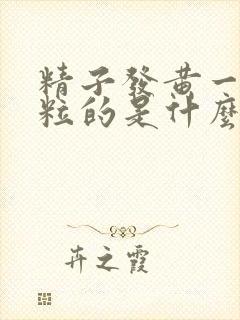 精子發黃一
粒的是什麼
卉之霞